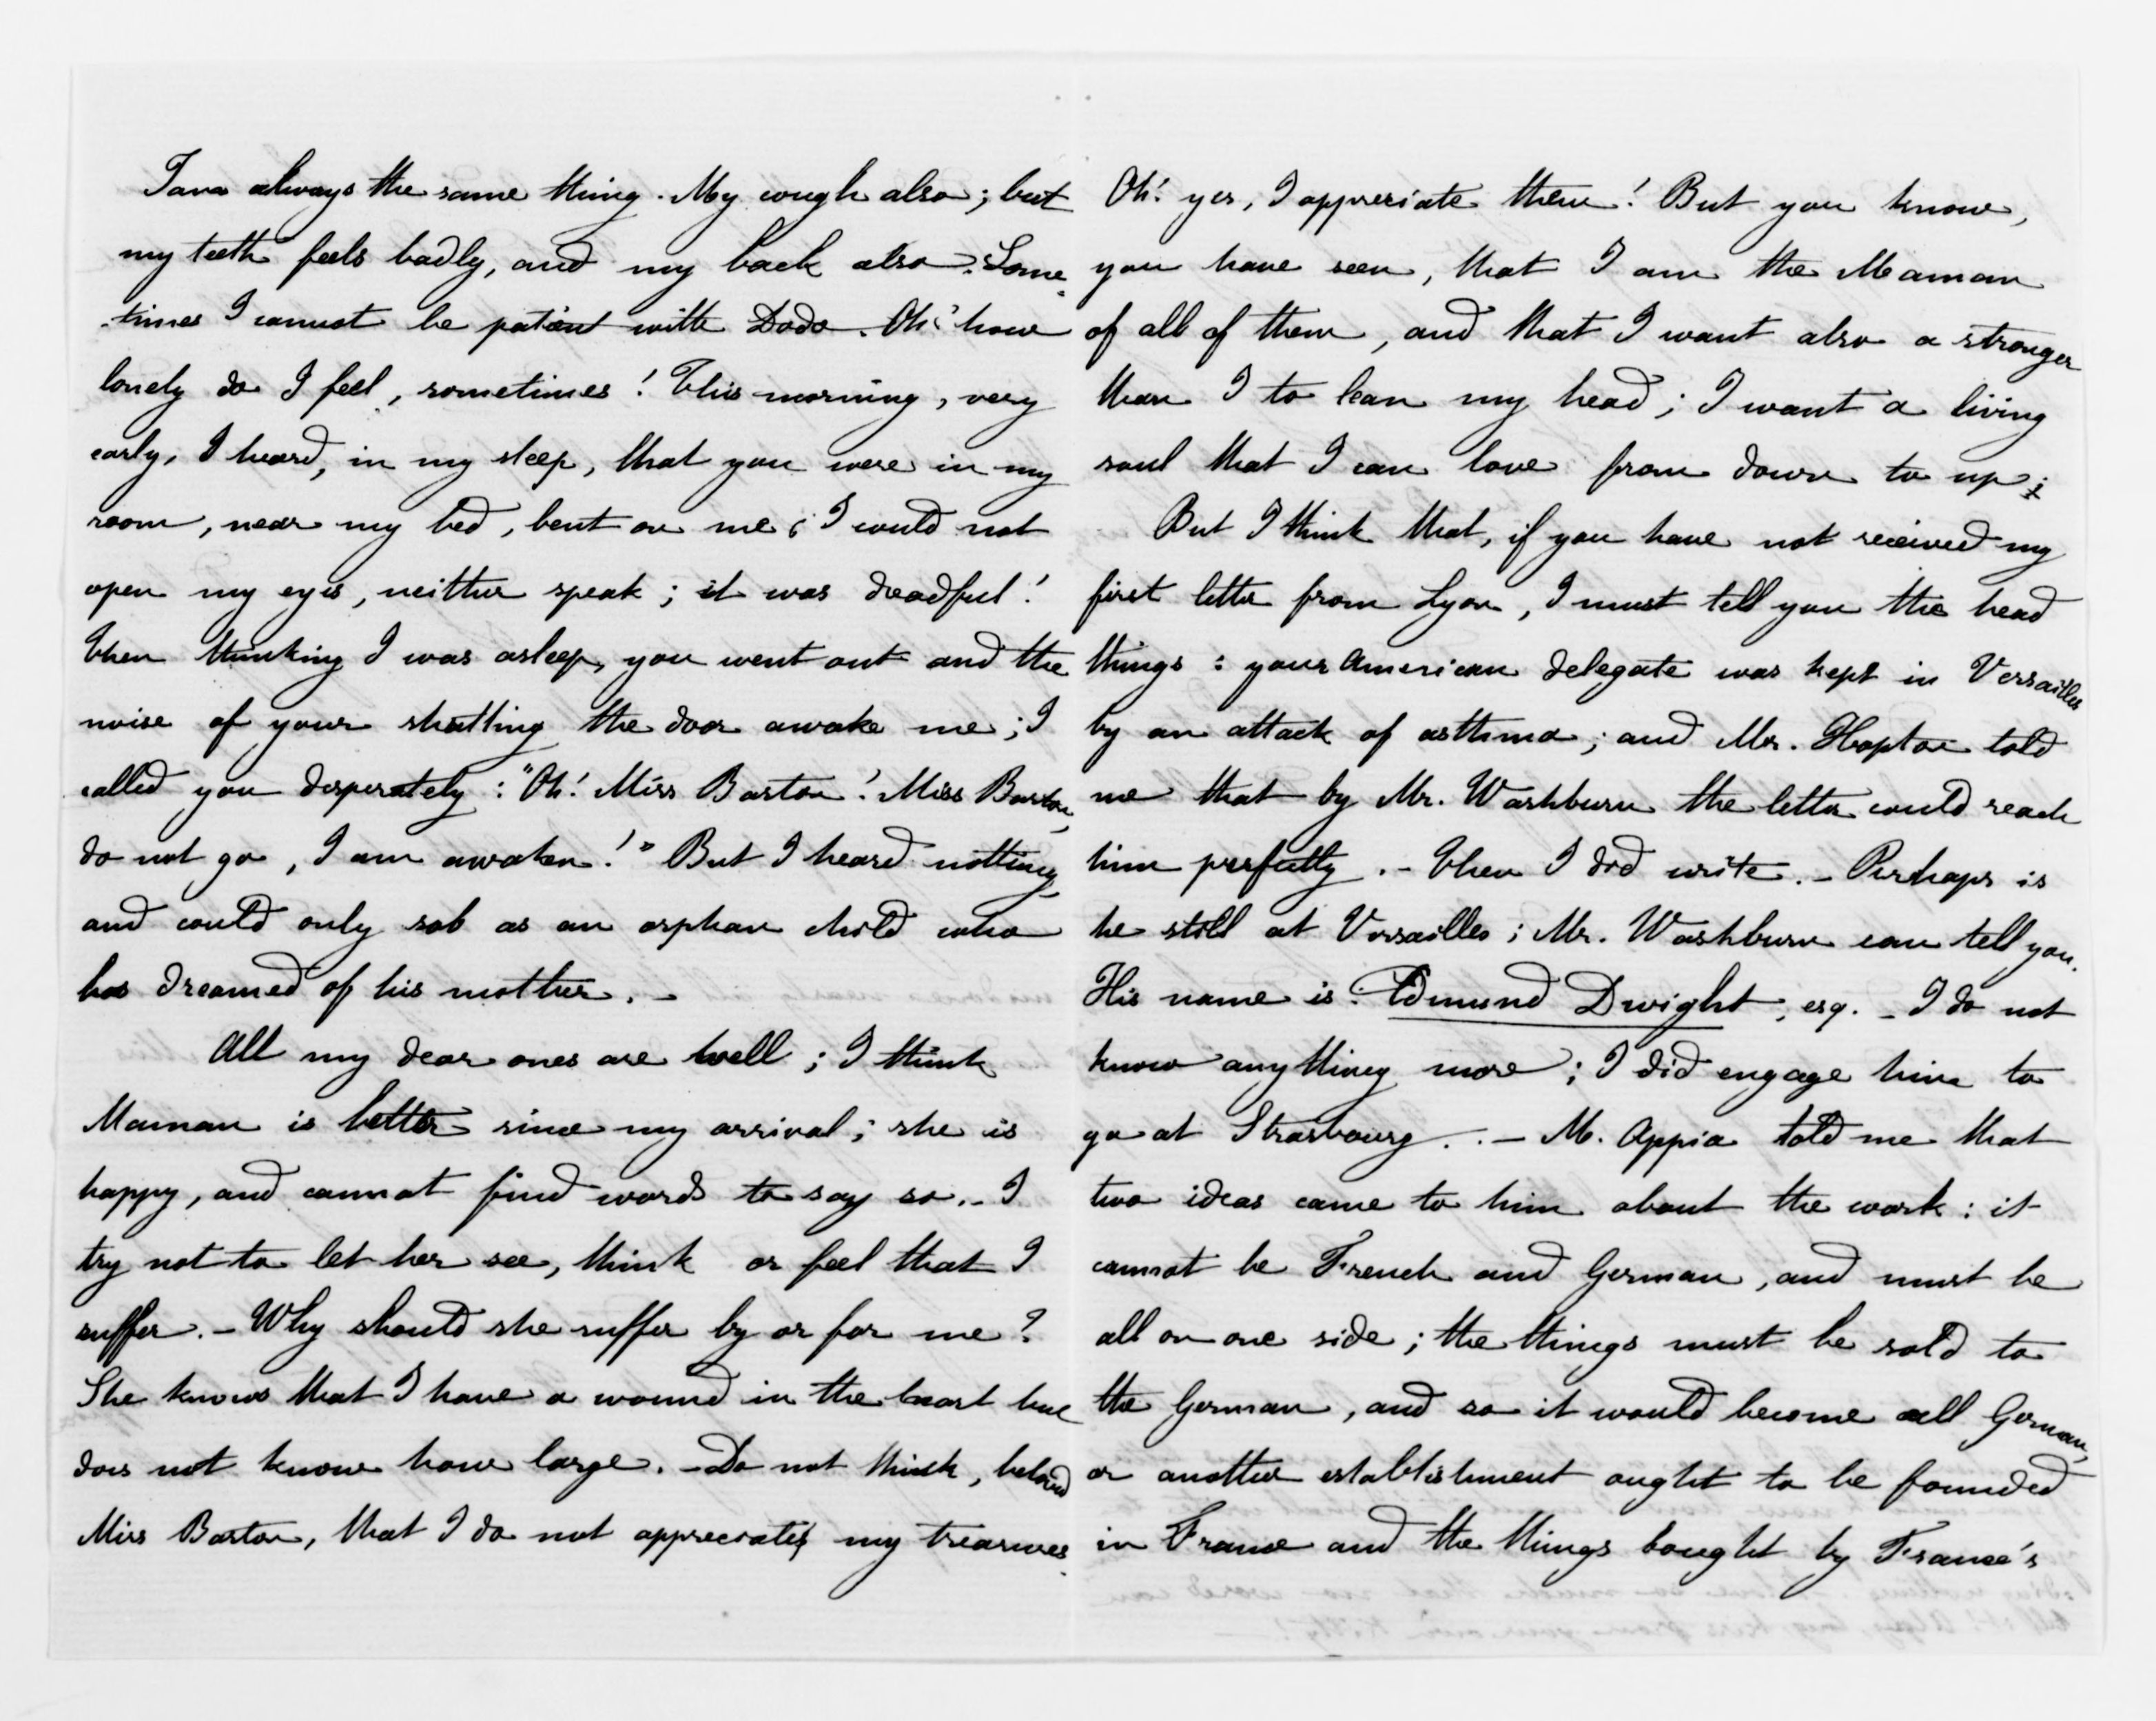 I am always the same thing. My cough also; but
my teeth feels badly, and my back also. Some
times I cannot be patient with Dodo. Oh! how
lonely do I feel, sometimes! This morning, very
early, I heard, in my sleep, that you were in my
room, near my bed, bent on me; I could not
open my eyes, neither speak; it was dreadful!
Then thinking I was asleep, you went out and the
noise of your shutting the door awake me; I
called you desperately: "Oh! Miss Barton! Miss Barton,
do not go, I am awaken!" But I heard nothing
and could only sob as an orphan child who
has dreamed of his mother. -
All my dear ones are well; I think
Maman is better since my arrival; she is
happy, and cannot find words to say so. - I
try not to let her see, think or feel that I
suffer. - Why should she suffer by or for me?
She knows that I have a wound in the heart but
does not know how large. - Do not think, beloved
Miss Barton, that I do not appreciate my treasures.
Oh! yes, I appreciate them! But you know,
you have seen, that I am the Maman
of all of them, and that I want also a stronger
than I to lean my head; I want a living
soul that I can love from down to up;
But I think that, if you have not received my
first letter from Lyon, I must tell you the head
things: your American delegate was kept in Versailles
by an attack of asthma; and Mr. told
me that by Mr. Washburn the letter could reach
him perfectly. - Then I did write. - Perhaps is
he still at Versailles; Mr. Washburn can tell you.
His name is: Edmund Dwight, esq. - I do not
know anything more; I did engage him to
go at Strasbourg. . - M. Appia told me that
two ideas came to him about the work: it
cannot be French and German, and must be
all on one side; the things must be sold to
the German, and so it would become all German,
or another establishment ought to be founded
in France and the things bought by France's